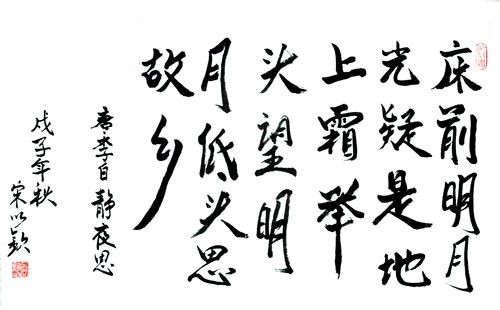 床前明月
光疑是地
上霜举
头望明
月低头思
故乡
唐李白静夜思
戊子年秋
宋